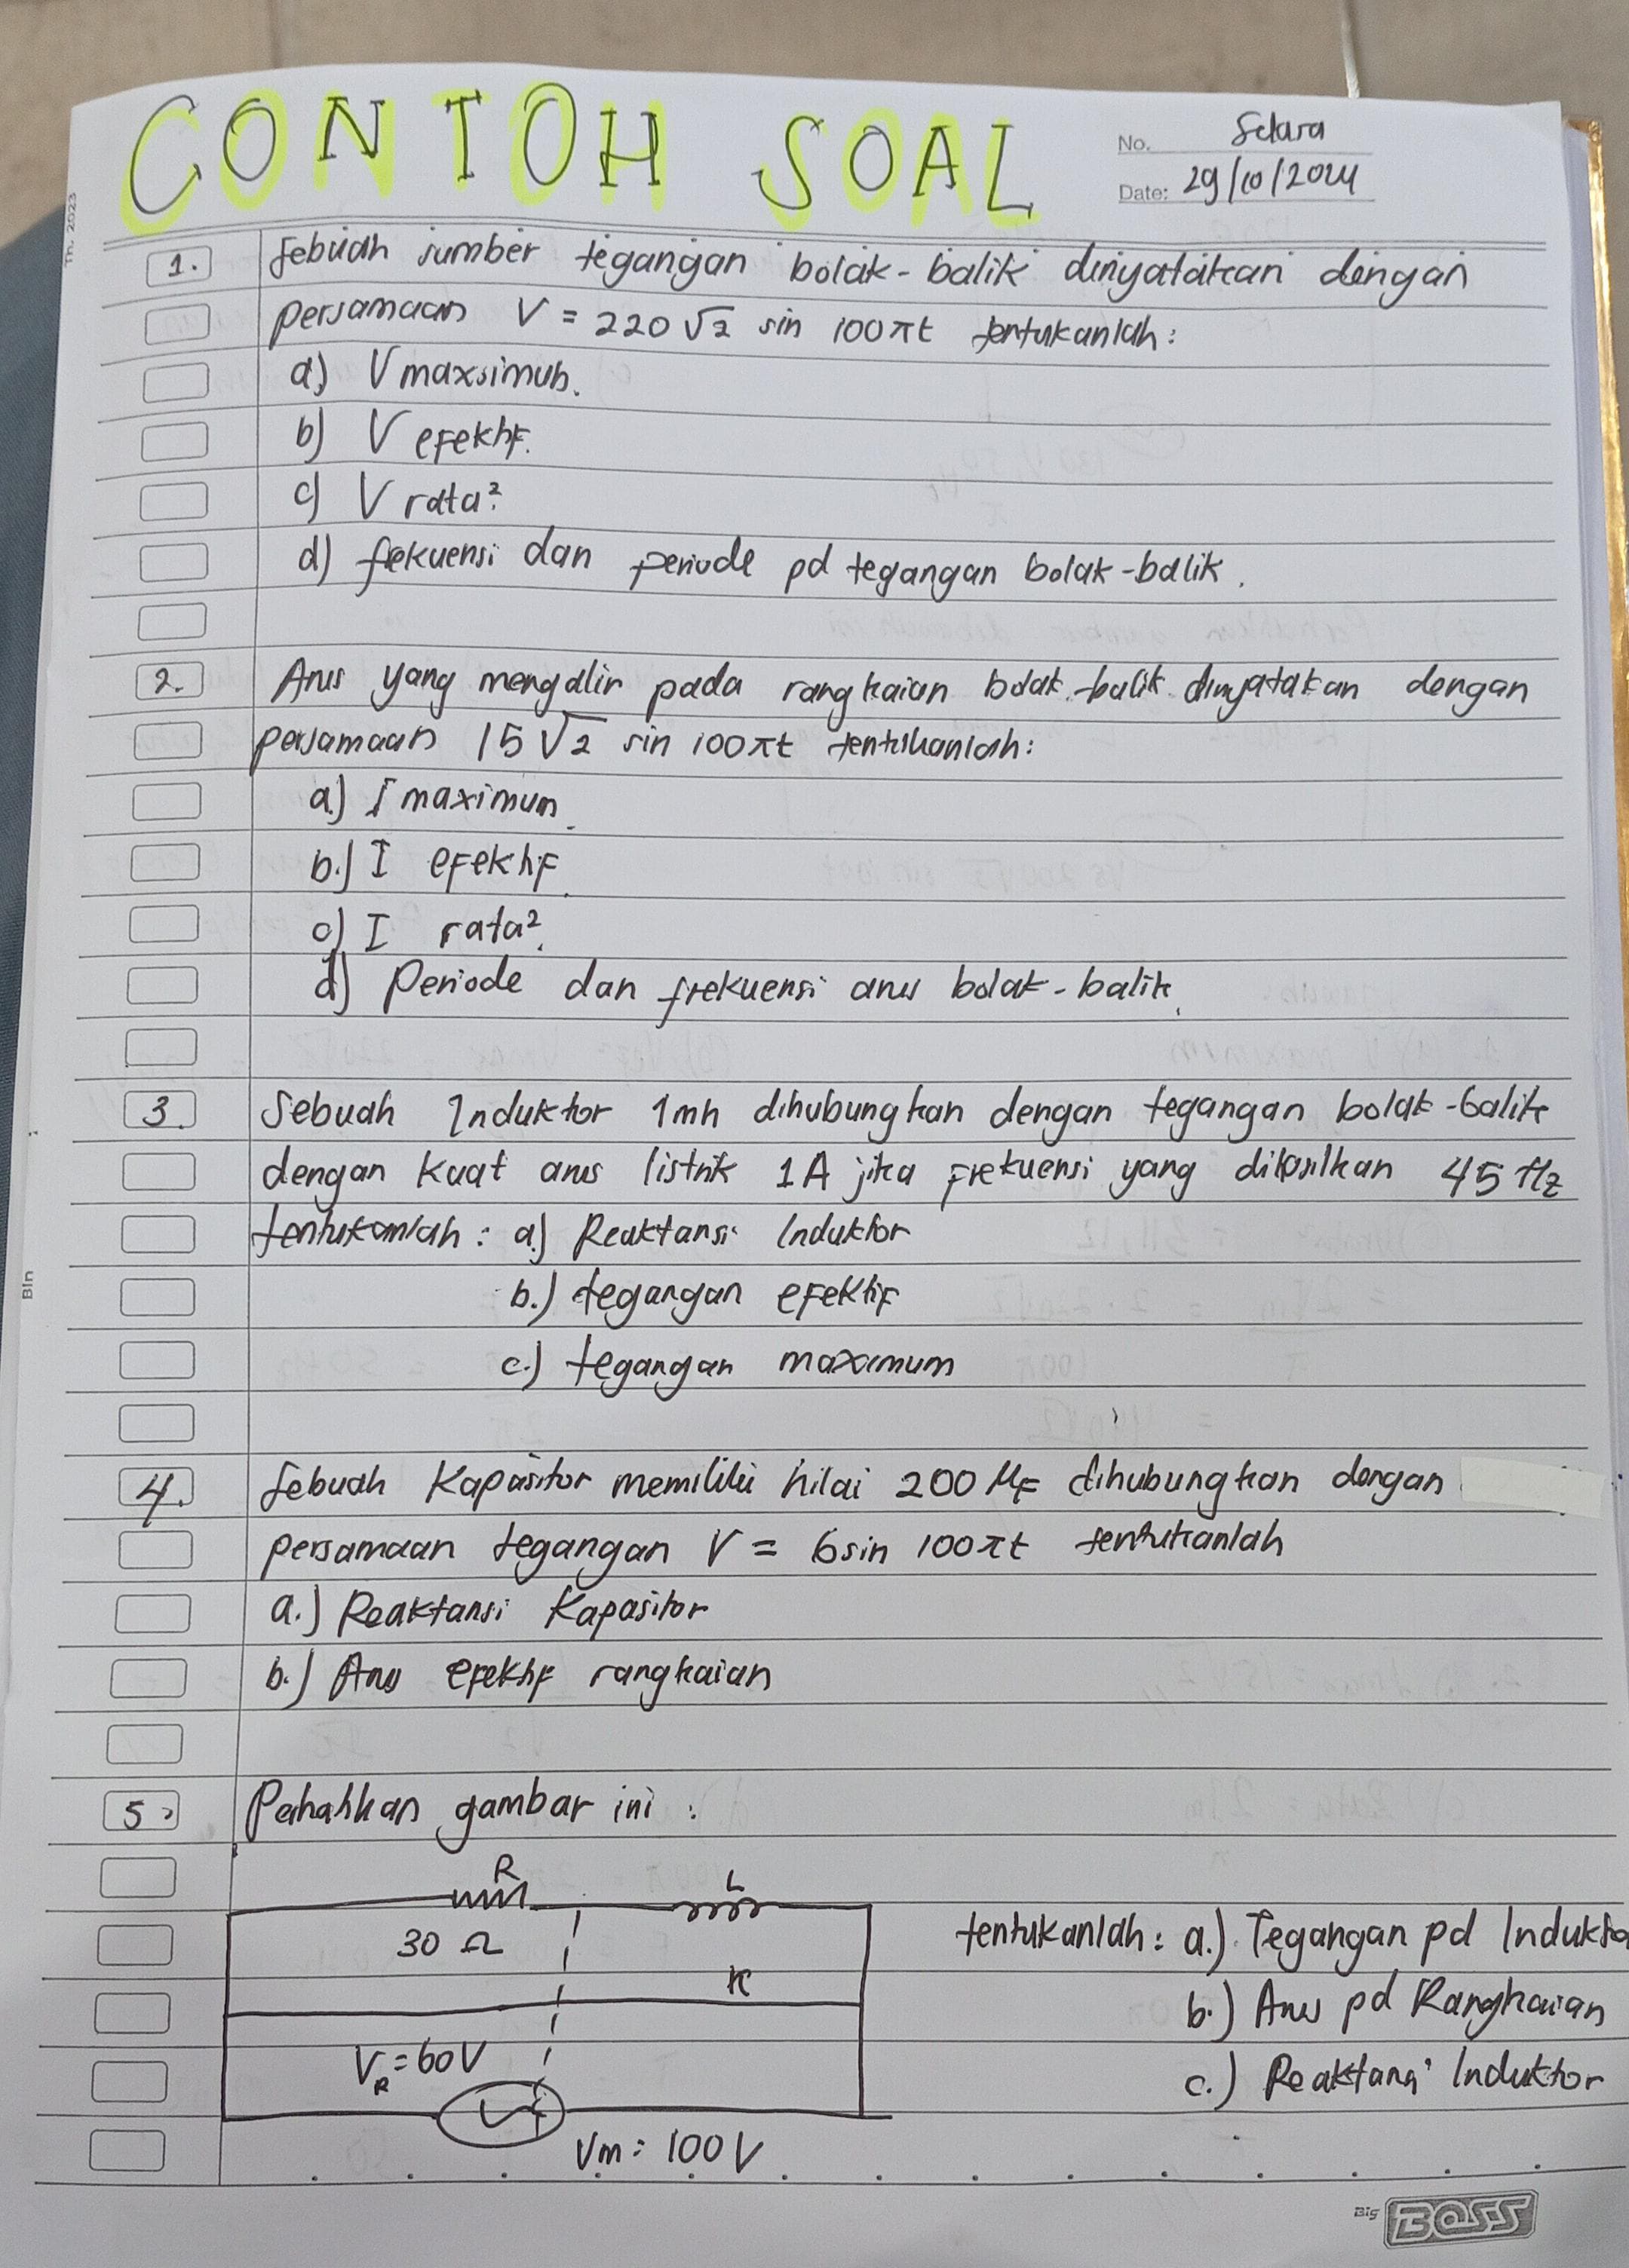 CONTOH SOAL
No. Selara
Date: 29/10/2024
Th. 2023
1. Sebuah sumber tegangan bolak-balik dinyatakan dengan
persamaan V = 220 √2 sin 100πt tentukanlah:
a) V maxsimuh.
b) V efektif.
c) V rata²
d) frekuensi dan periode pd tegangan bolak-balik.
2. Arus yang mengalir pada rangkaian bolak-balik dinyatakan dengan
persamaan 15 √2 sin 100πt tentukanlah:
a.) I maximum.
b.) I efektif.
c) I rata².
d) Periode dan frekuensi arus bolak-balik.
3. Sebuah Induktor 1mh dihubungkan dengan tegangan bolak-balik
dengan kuat arus listrik 1A jika frekuensi yang dihasilkan 45 Hz
tentukanlah: a.) Reaktansi Induktor
b.) tegangan efektif
c.) tegangan maximum
Bln
4. Sebuah Kapasitor memiliki nilai 200 µF dihubungkan dengan
persamaan tegangan V = 6 sin 100πt tentukanlah
a.) Reaktansi Kapasitor
b.) Arus efektif rangkaian
5. Perhatikan gambar ini :
R
L
30 Ω
K
V_R = 60V
Vm = 100 V
tentukanlah: a.) Tegangan pd Indukto
b.) Arus pd Rangkaian
c.) Reaktansi Induktor
Big BOSS